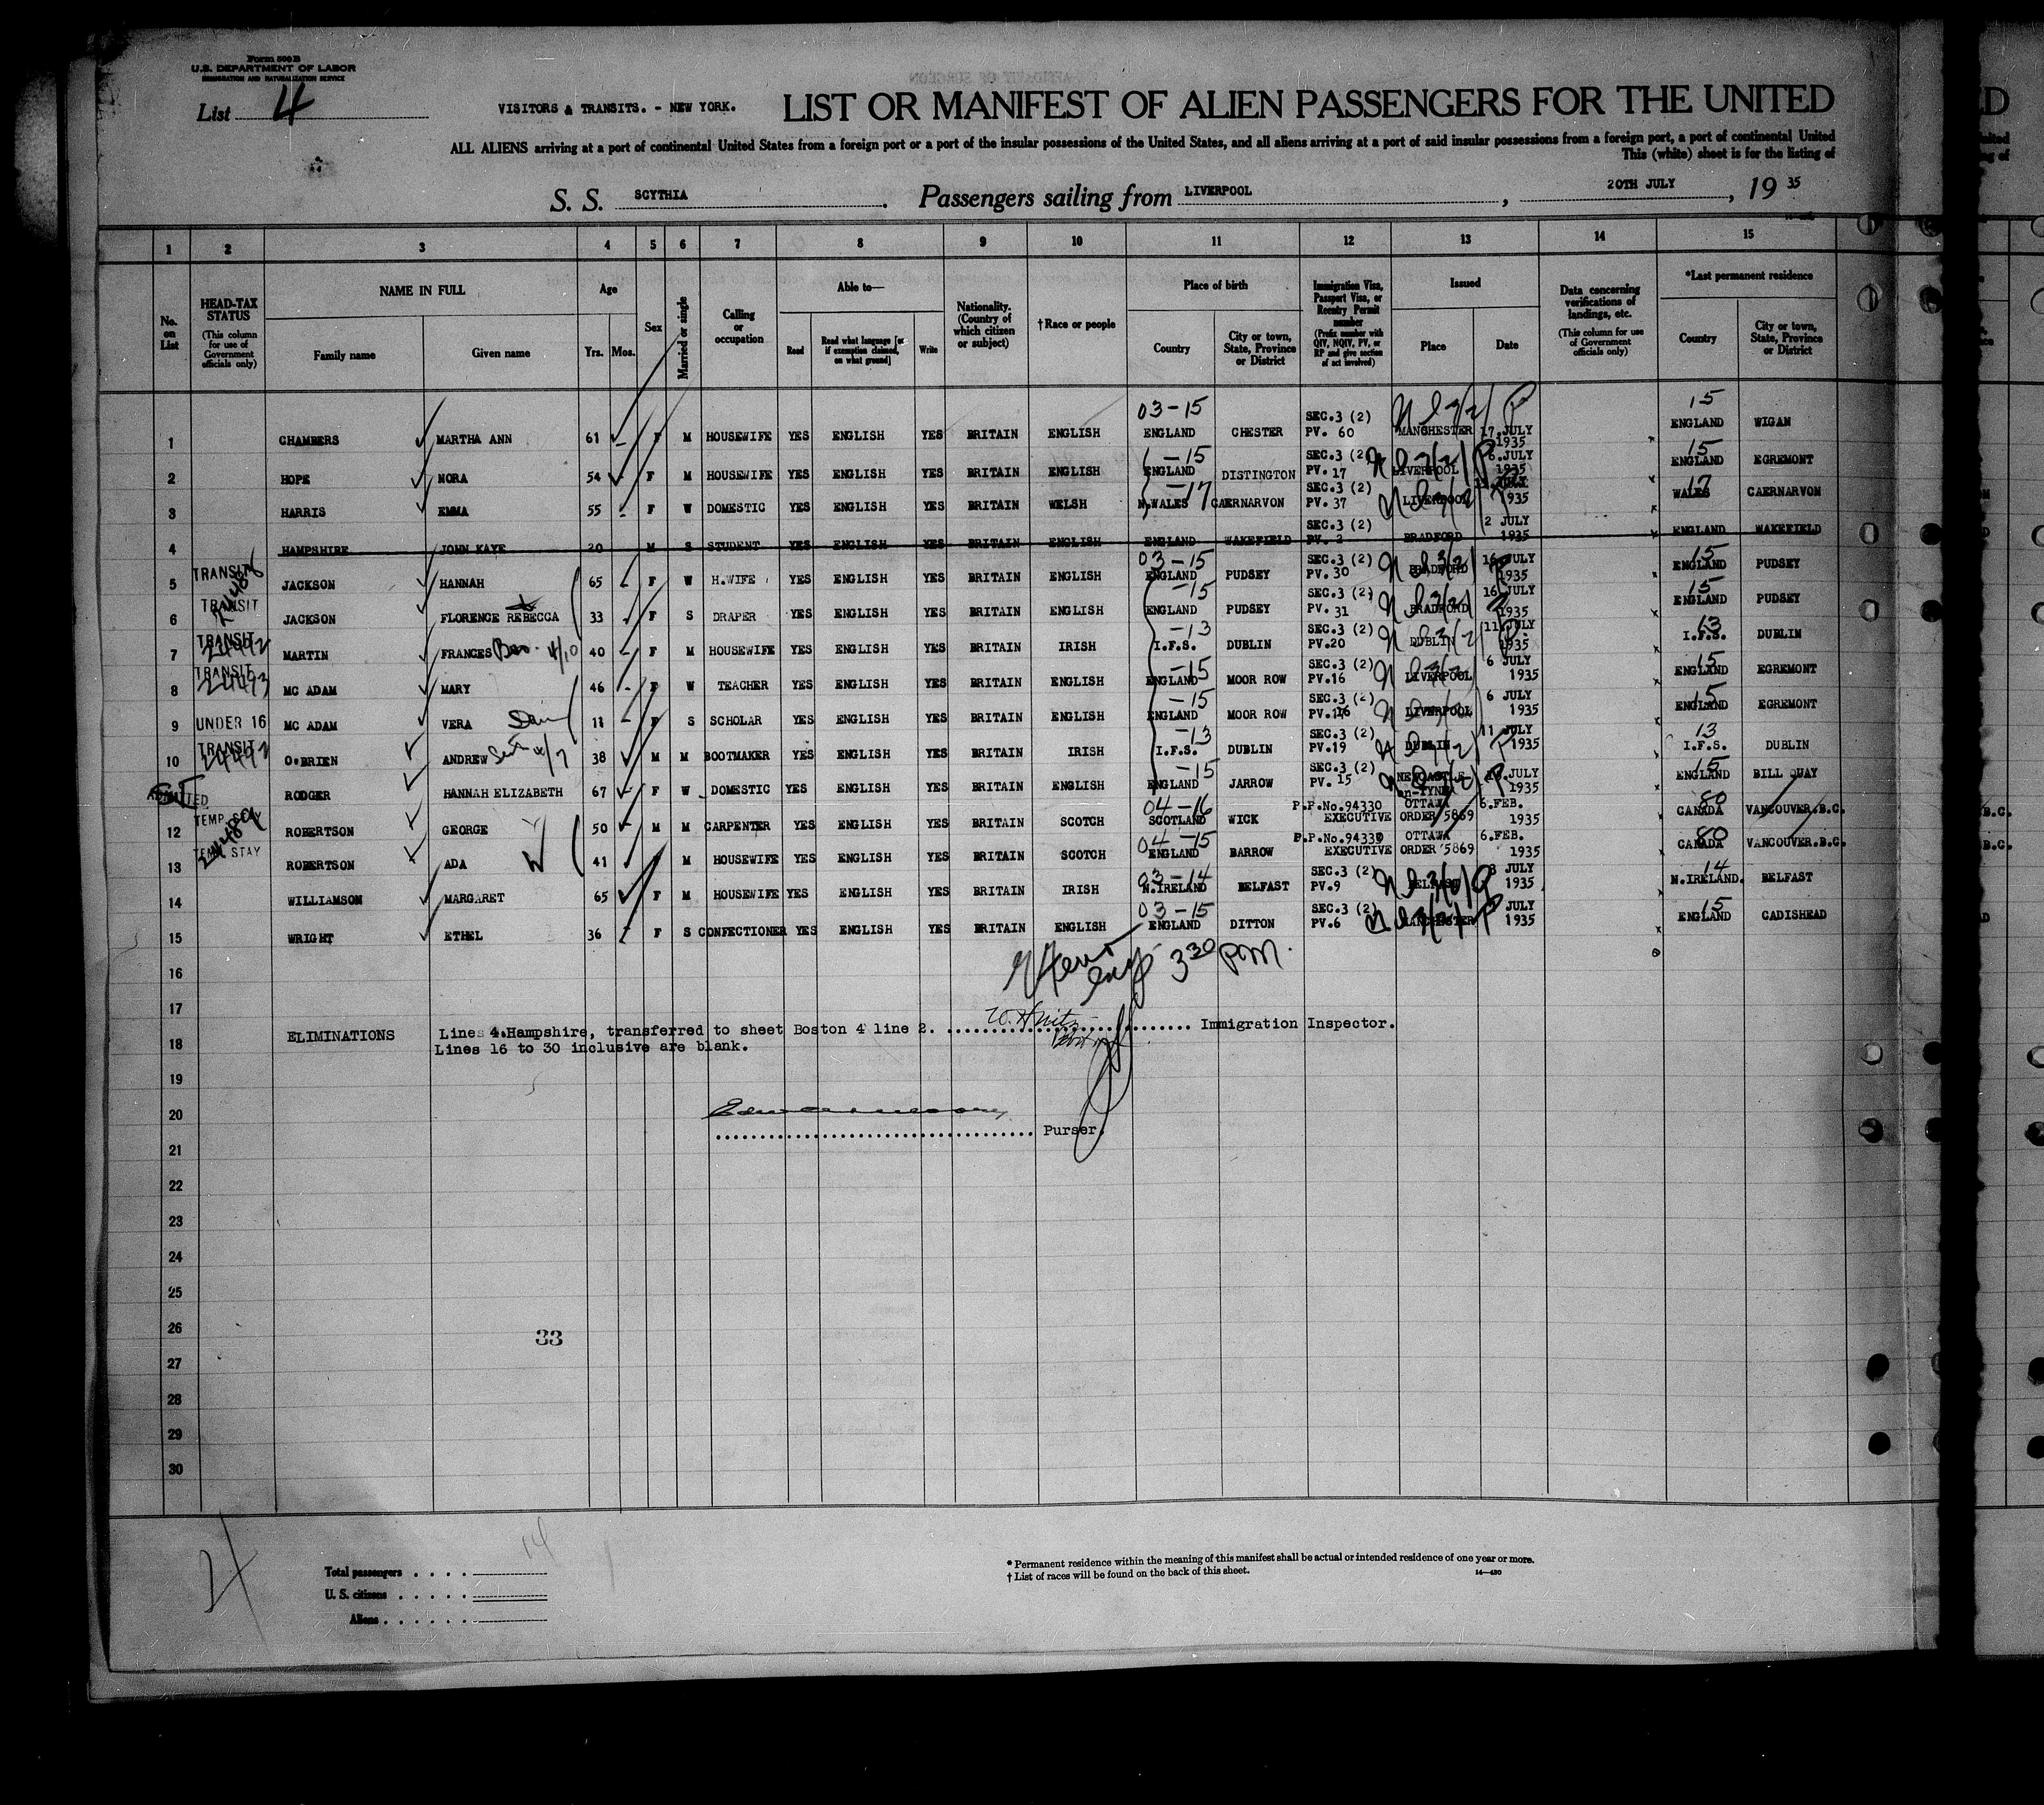 Form 500 B
U.S. DEPARTMENT OF LABOR
IMMIGRATION AND NATURALIZATION SERVICE
List 4
VISITORS & TRANSITS. - NEW YORK. LIST OR MANIFEST OF ALIEN PASSENGERS FOR THE UNITED
ALL ALIENS arriving at a port of continental United States from a foreign port or a port of the insular possessions of the United States, and all aliens arriving at a port of said insular possessions from a foreign port, a port of continental United
This (white) sheet is for the listing of
S. S. SCYTHIA. Passengers sailing from LIVERPOOL, 20TH JULY, 19 35
1 2 3 4 5 6 7 8 9 10 11 12 13 14 15
No. on List
HEAD-TAX STATUS (This column for use of Government officials only)
NAME IN FULL Family name Given name
Age Yrs. Mos.
Sex
Married or single
Calling or occupation
Able to— Read Read what language [or if exemption claimed, on what ground] Write
Nationality. (Country of which citizen or subject)
† Race or people
Place of birth Country City or town, State, Province or District
Immigration Visa, Passport Visa, or Reentry Permit number (Prefix number with QIV, NQIV, PV, or RP and give section of act involved)
Issued Place Date
Data concerning verifications of landings, etc. (This column for use of Government officials only)
*Last permanent residence Country City or town, State, Province or District
1 CHAMBERS MARTHA ANN 61 F M HOUSEWIFE YES ENGLISH YES BRITAIN ENGLISH 03-15 ENGLAND CHESTER SEC.3 (2) PV. 60 MANCHESTER 17 JULY 1935 15 ENGLAND WIGAN
2 HOPE NORA 54 F M HOUSEWIFE YES ENGLISH YES BRITAIN ENGLISH -15 ENGLAND DISTINGTON SEC.3 (2) PV. 17 LIVERPOOL 6 JULY 1935 15 ENGLAND EGREMONT
3 HARRIS EMMA 55 F W DOMESTIC YES ENGLISH YES BRITAIN WELSH -17 N.WALES CAERNARVON SEC.3 (2) PV. 37 LIVERPOOL JULY 1935 17 WALES CAERNARVON
4 HAMPSHIRE JOHN KAYE 20 M S STUDENT YES ENGLISH YES BRITAIN ENGLISH ENGLAND WAKEFIELD SEC.3 (2) PV. 2 BRADFORD 2 JULY 1935 ENGLAND WAKEFIELD
5 TRANSIT JACKSON HANNAH 65 F W H.WIFE YES ENGLISH YES BRITAIN ENGLISH 03-15 ENGLAND PUDSEY SEC.3 (2) PV. 30 BRADFORD 16 JULY 1935 15 ENGLAND PUDSEY
6 TRANSIT JACKSON FLORENCE REBECCA 33 F S DRAPER YES ENGLISH YES BRITAIN ENGLISH -15 ENGLAND PUDSEY SEC.3 (2) PV. 31 BRADFORD 16 JULY 1935 15 ENGLAND PUDSEY
7 TRANSIT 24492 MARTIN FRANCES 4/10 40 F M HOUSEWIFE YES ENGLISH YES BRITAIN IRISH -13 I.F.S. DUBLIN SEC.3 (2) PV.20 DUBLIN 11 JULY 1935 13 I.F.S. DUBLIN
8 TRANSIT 24493 MC ADAM MARY 46 F W TEACHER YES ENGLISH YES BRITAIN ENGLISH -15 ENGLAND MOOR ROW SEC.3 (2) PV.16 LIVERPOOL 6 JULY 1935 15 ENGLAND EGREMONT
9 UNDER 16 MC ADAM VERA 11 F S SCHOLAR YES ENGLISH YES BRITAIN ENGLISH -15 ENGLAND MOOR ROW SEC.3 (2) PV.16 LIVERPOOL 6 JULY 1935 15 ENGLAND EGREMONT
10 TRANSIT 24492 O'BRIEN ANDREW 38 M M BOOTMAKER YES ENGLISH YES BRITAIN IRISH -13 I.F.S. DUBLIN SEC.3 (2) PV.19 DUBLIN 11 JULY 1935 13 I.F.S. DUBLIN
ADMITTED RODGER HANNAH ELIZABETH 67 F W DOMESTIC YES ENGLISH YES BRITAIN ENGLISH -15 ENGLAND JARROW SEC.3 (2) PV. 15 NEWCASTLE-on-TYNE JULY 1935 15 ENGLAND BILL QUAY
12 TEMP. STAY ROBERTSON GEORGE 50 M M CARPENTER YES ENGLISH YES BRITAIN SCOTCH 04-16 SCOTLAND WICK P.P.No.94330 EXECUTIVE ORDER 5869 OTTAWA 6.FEB. 1935 80 CANADA VANCOUVER.B.C.
13 TEMP. STAY ROBERTSON ADA 41 M HOUSEWIFE YES ENGLISH YES BRITAIN SCOTCH 04-15 ENGLAND BARROW P.P.No.94330 EXECUTIVE ORDER 5869 OTTAWA 6.FEB. 1935 80 CANADA VANCOUVER.B.C.
14 WILLIAMSON MARGARET 65 F M HOUSEWIFE YES ENGLISH YES BRITAIN IRISH 03-14 N.IRELAND BELFAST SEC.3 (2) PV.9 BELFAST 3 JULY 1935 14 N.IRELAND. BELFAST
15 WRIGHT ETHEL 36 F S CONFECTIONER YES ENGLISH YES BRITAIN ENGLISH 03-15 ENGLAND DITTON SEC.3 (2) PV.6 MANCHESTER JULY 1935 15 ENGLAND CADISHEAD
16
3 30 P.M.
17
ELIMINATIONS Lines 4.Hampshire, transferred to sheet Boston 4 line 2. .......... Immigration Inspector.
18 Lines 16 to 30 inclusive are blank.
19
20
.......... Purser.
21
22
23
24
25
26
33
27
28
29
30
Total passengers . . . . 14
U. S. citizens . . . . .
Aliens . . . . . .
* Permanent residence within the meaning of this manifest shall be actual or intended residence of one year or more.
† List of races will be found on the back of this sheet. 14—430